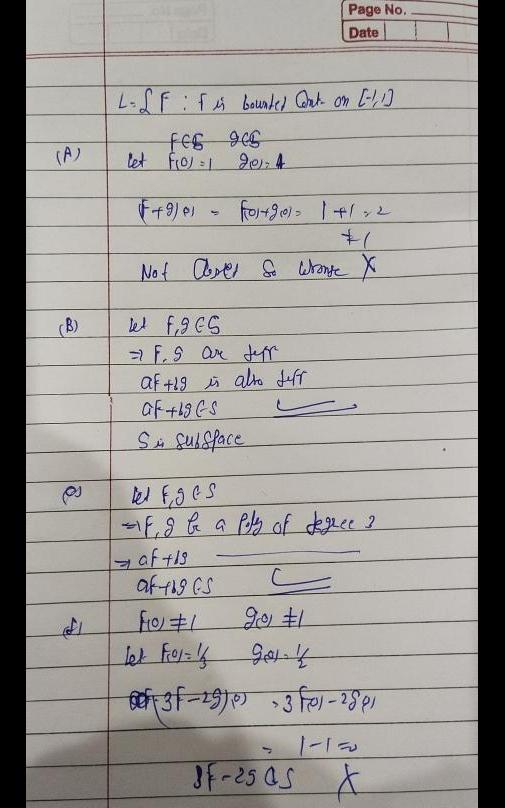 Page No.
Date
L = { F : F is bounded Cont. on [-1,1]
F∈S g∈S
(A) Let F(0) = 1 g(0) = 1
(F+g)(0) = F(0)+g(0) = 1+1 = 2
≠1
Not Closed So wrong X
(B) Let F, g ∈ S
⇒ F, g are diff
aF+bg is also diff
aF+bg ∈ S
S is subspace
Let F, g ∈ S
⇒ F, g be a Poly of degree 3
⇒ aF+bg
aF+bg ∈ S
(d) F(0) ≠ 1 g(0) ≠ 1
Let F(0) = 1/3 g(0) = 1/2
(3F-2g)(0) = 3F(0)-2g(0)
= 1-1 = 0
3F-2g ∈ S X